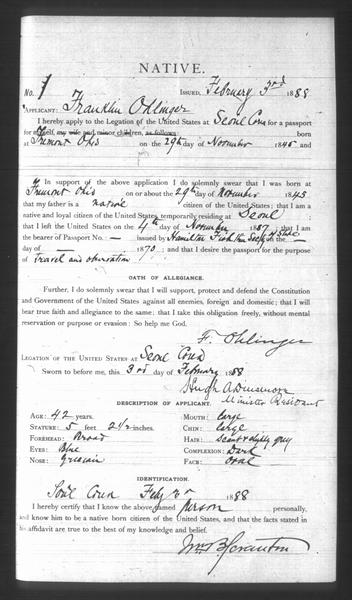 NATIVE.
No. 1 ISSUED, February 3rd 1888
APPLICANT: Franklin Ohlinger
I hereby apply to the Legation of the United States at Seoul Corea for a passport
for myself, my wife and minor children, as follows: born
at Fremont Ohio on the 29th day of November 1845 and
In support of the above application I do solemnly swear that I was born at
Fremont Ohio on or about the 29th day of November 1845
that my father is a native citizen of the United States; that I am a
native and loyal citizen of the United States temporarily residing at Seoul;
that I left the United States on the 4th day of November 1887; that I am
the bearer of Passport No. — issued by Hamilton Fish the Sec'y of State on the —
day of — 1870; and that I desire the passport for the purpose
of Travel and observation
OATH OF ALLEGIANCE.
Further, I do solemnly swear that I will support, protect and defend the Constitution
and Government of the United States against all enemies, foreign and domestic; that I
will bear true faith and allegiance to the same; that I take this obligation freely, without mental
reservation or purpose of evasion: So help me God.
F. Ohlinger
LEGATION OF THE UNITED STATES AT Seoul Corea
Sworn to before me, this 3rd day of February 1888
Hugh A Dinsmore
Minister Resident
DESCRIPTION OF APPLICANT.
AGE: 42 years. MOUTH: large
STATURE: 5 feet 2 1/2 inches. CHIN: large
FOREHEAD: Broad HAIR: scant & slightly grey
EYES: Blue COMPLEXION: Dark
NOSE: Grecian FACE: Oval
IDENTIFICATION.
Seoul Corea Feby 3rd 1888
I hereby certify that I know the above named person personally,
and know him to be a native born citizen of the United States, and that the facts stated in
his affidavit are true to the best of my knowledge and belief.
Wm B Scranton